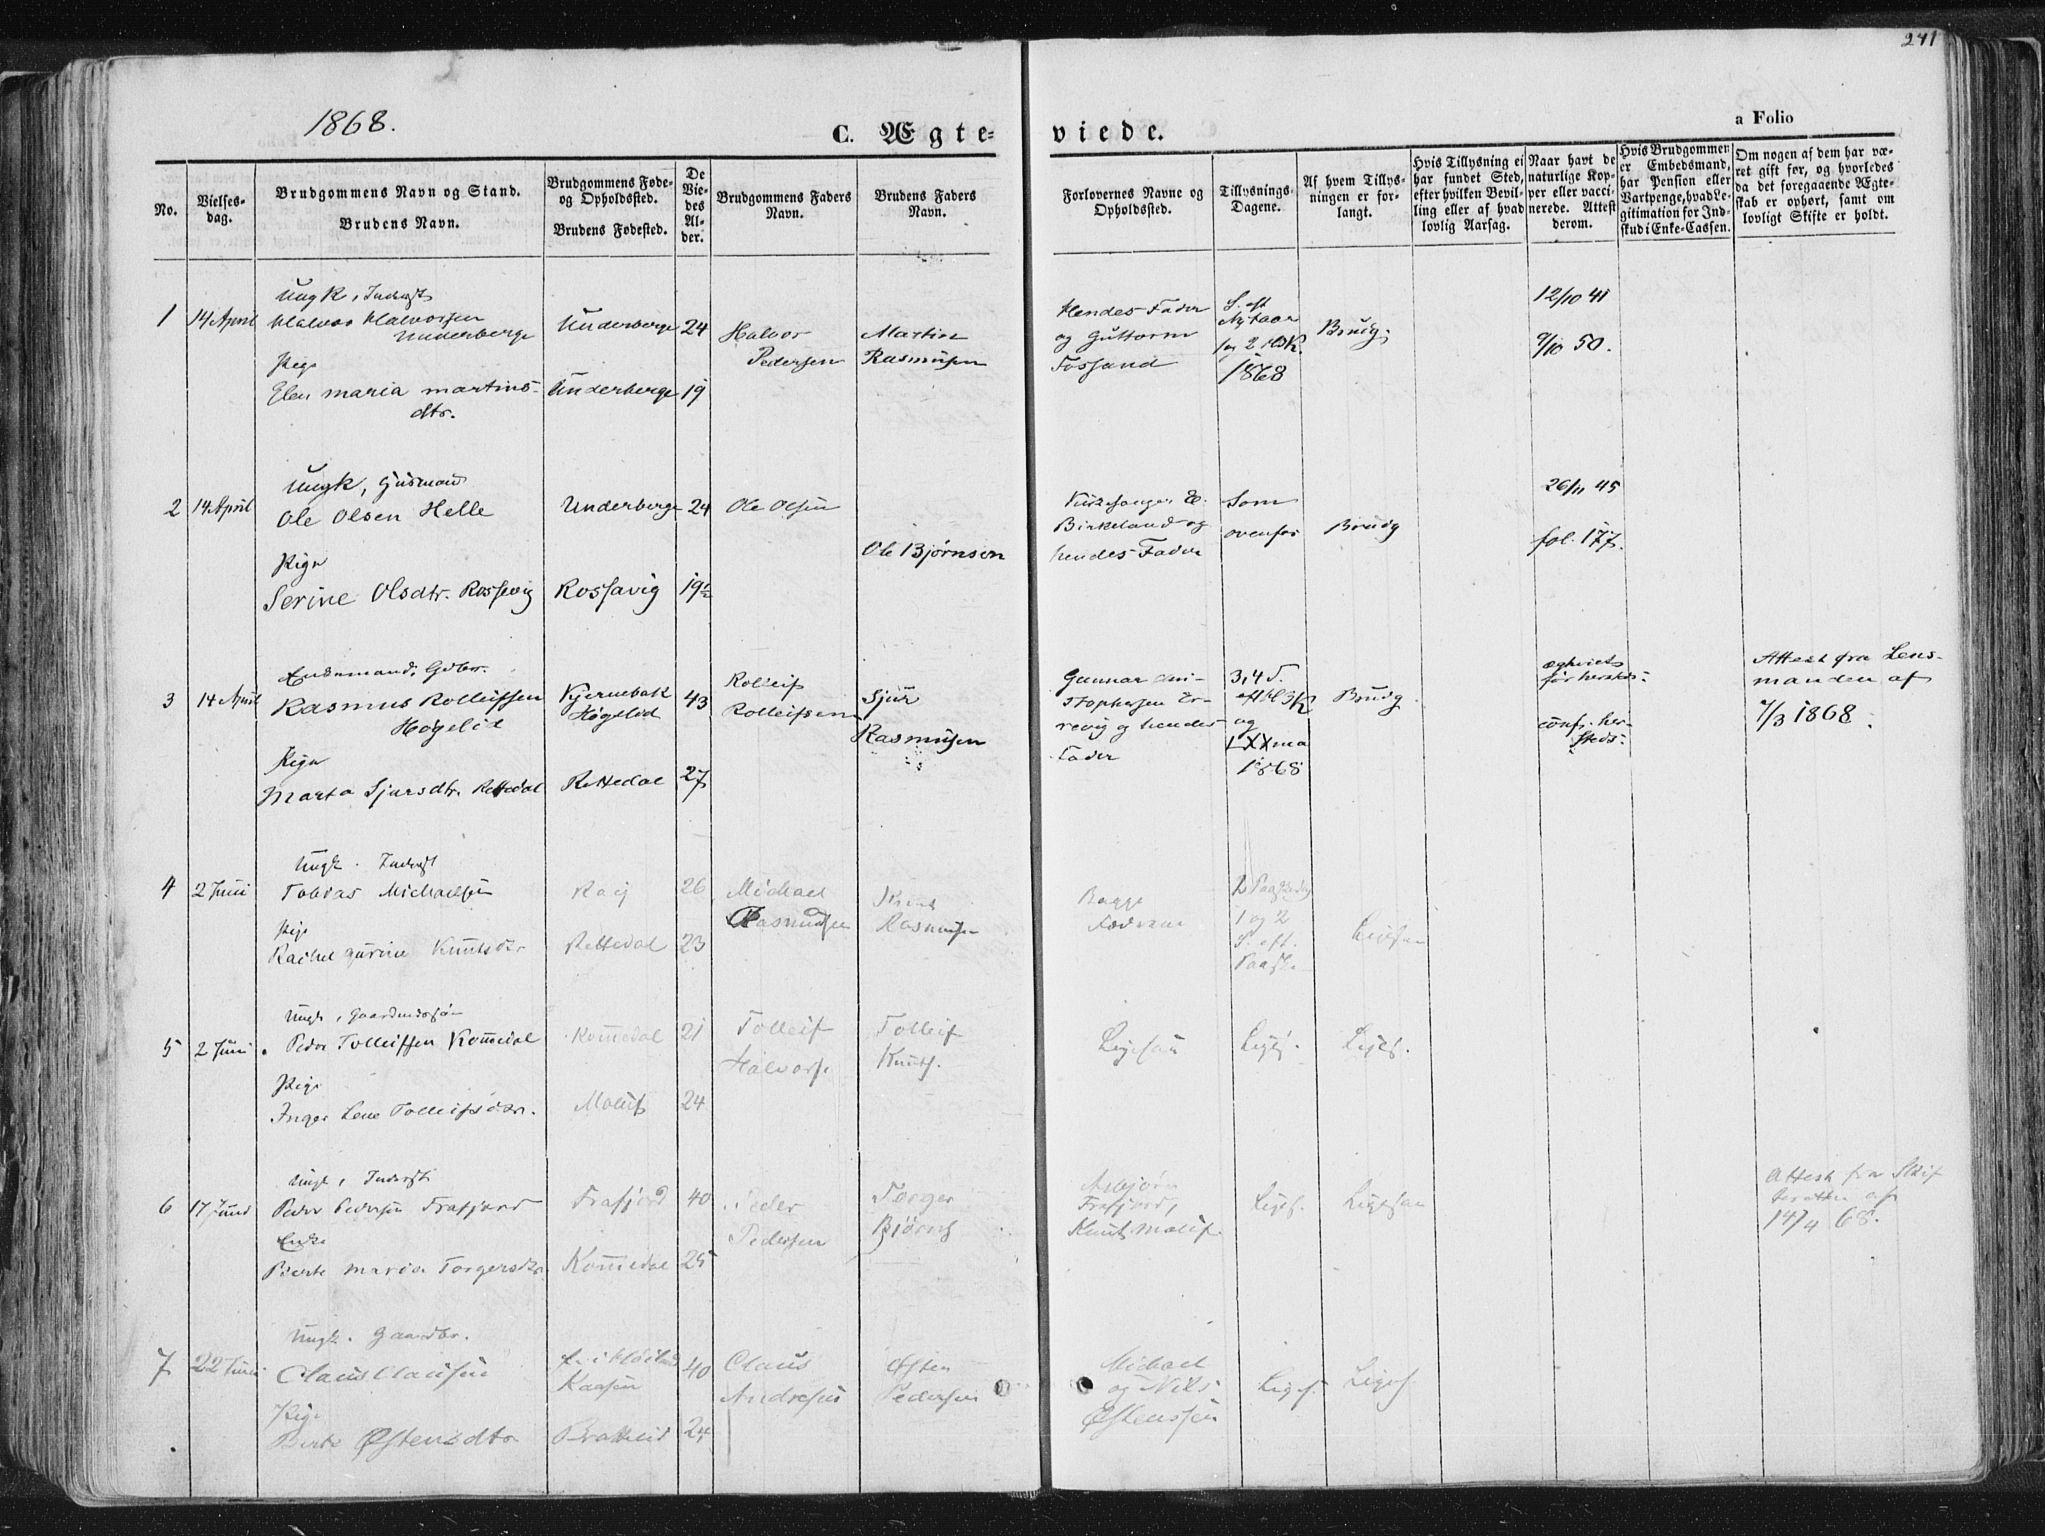 241
1868.
C. Ægte-
viede.
a Folio
No.
Vielses-
dag.
Brudgommens Navn og Stand.
Brudens Navn.
Brudgommens Føde-
og Opholdssted.
Brudens Fødested.
De
Vie-
des
Al-
der.
Brudgommens Faders
Navn.
Brudens Faders
Navn.
Forlovernes Navne og
Opholdssted.
Tillysnings-
Dagene.
Af hvem Tillys-
ningen er for-
langt.
Hvis Tillysning ei
har fundet Sted,
efter hvilken Bevil-
ling eller af hvad
lovlig Aarsag.
Naar havt de
naturlige Kop-
per eller vacci-
nerede. Attest
derom.
Hvis Brudgommen
er Embedsmand,
har Pension eller
Vartpenge, hvad Le-
gitimation for Ind-
skud i Enke-Cassen.
Om nogen af dem har væ-
ret gift før, og hvorledes
da det foregaaende Ægte-
skab er ophørt, samt om
lovligt Skifte er holdt.
1
14 April
Ungk, Inderst
Halvor Halvorsen
Underberge
Pige
Elen Maria Martins-
dtr.
Underberge
Underberge
24
19
Halvor
Pedersen
Martin
Rasmusen
Hendes Fader
og Guttorm
Fossand
S. eft
Nytaar
og 2 H3K.
1868
Brudg.
12/10 41
9/10 50.
2
14 April
Ungk, Husmand
Ole Olsen Helle
Pige
Serine Olsdtr. Rossevig
Underberge
Rossavig
24
19½
Ole Olsen
Ole Bjørnsen
Kirkesanger E.
Birkeland og
hendes Fader
Som
ovenfor
Brudg
26/11 45
fol. 177.
3
14 April
Enkemand, Gdbr.
Rasmus Rolleifsen
Høgelid
Pige
Marta Sjursdtr. Rettedal
Kjernebak
Høgelid
Rettedal
43
27
Rolleif
Rolleifsen
Sjur
Rasmusen
Gunnar Chri-
stophersen Er-
revig og hendes
Fader
3, 4 S.
eft H3K
og
LXXma
1868
Brudg.
conf. her-
steds:
Attest fra Lens-
manden af
7/3 1868.
4
2 Juni
Ungk. Inderst
Tobias Michaelsen
Pige
Rachel Gurine Knutsdtr
Rettedal
26
23
Michael
Rasmusen
Knut
Rasmusen
Bagge
1 og 2
S. eft.
Paaske
Ligesaa
5
2 Juni
Ungk, Gaardmandssøn
Peder Tolleifsen Kommedal
Pige
Inger Lene Tolleifsdtr.
Kommedal
21
24
Tolleif
Halvors.
Tolleif
Knuts.
Ligesaa
Liges.
Liges.
6
17 Juni
Ungk, Inderst
Peder Pedersen Frafjord
Enke
Bierte Maria Torgersdtr
Frafjord
Kommedal
40
25
Peder
Pedersen
Torger
Bjørns
Asbjørn
Frafjord,
Knut
Liges.
Ligesaa
Attest fra Skif
teretten af
14/4 68.
7
22 Juni
Ungk. Gaardbr.
Claus Clausen
Pige
Berte Østensdtr
Bratteid
40
24
Claus
Andresen
Østen
Pedersen
Michael
og Nils
Østenssen
Liges.
Liges.